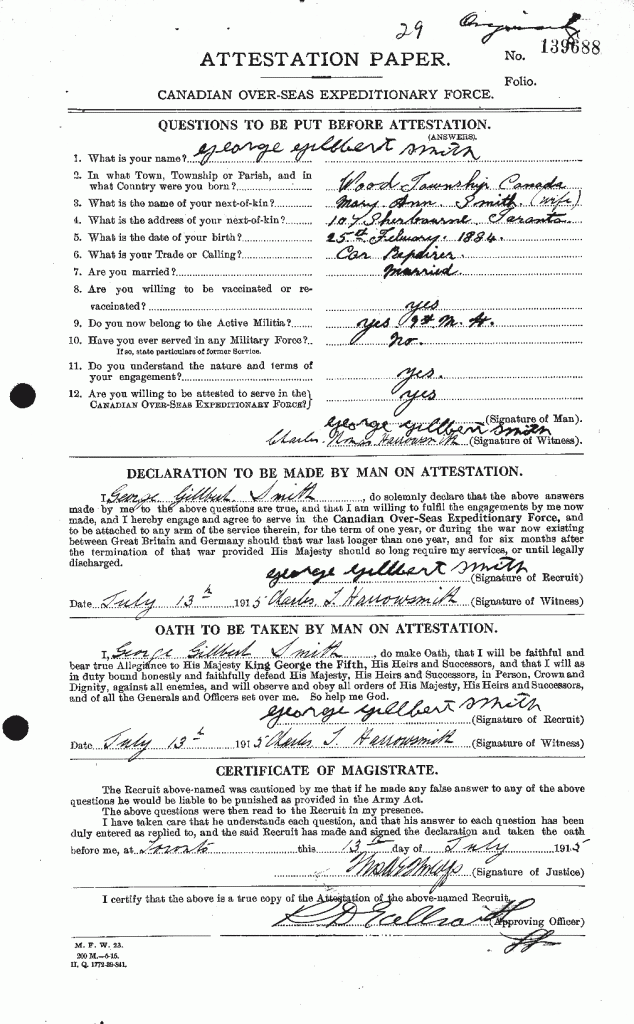 29 Original
ATTESTATION PAPER.
No. 139688
Folio.
CANADIAN OVER-SEAS EXPEDITIONARY FORCE.
QUESTIONS TO BE PUT BEFORE ATTESTATION.
(ANSWERS).
1. What is your name? George Gilbert Smith
2. In what Town, Township or Parish, and in
what Country were you born? Wood Township Canada
3. What is the name of your next-of-kin? Mary Ann Smith (wife)
4. What is the address of your next-of-kin? 107 Sherbourne Toronto
5. What is the date of your birth? 25th Febuary. 1884.
6. What is your Trade or Calling? Car Repairer.
7. Are you married? Married
8. Are you willing to be vaccinated or re-
vaccinated? yes
9. Do you now belong to the Active Militia? yes 9th M. H.
10. Have you ever served in any Military Force? No.
If so, state particulars of former Service.
11. Do you understand the nature and terms of
your engagement? yes.
12. Are you willing to be attested to serve in the
CANADIAN OVER-SEAS EXPEDITIONARY FORCE? yes
George Gilbert Smith (Signature of Man).
Charles Harrowsmith (Signature of Witness).
DECLARATION TO BE MADE BY MAN ON ATTESTATION.
I, George Gilbert Smith, do solemnly declare that the above answers
made by me to the above questions are true, and that I am willing to fulfil the engagements by me now
made, and I hereby engage and agree to serve in the Canadian Over-Seas Expeditionary Force, and
to be attached to any arm of the service therein, for the term of one year, or during the war now existing
between Great Britain and Germany should that war last longer than one year, and for six months after
the termination of that war provided His Majesty should so long require my services, or until legally
discharged.
George Gilbert Smith (Signature of Recruit)
Date July 13th 1915 Charles T Harrowsmith (Signature of Witness)
OATH TO BE TAKEN BY MAN ON ATTESTATION.
I, George Gilbert Smith, do make Oath, that I will be faithful and
bear true Allegiance to His Majesty King George the Fifth, His Heirs and Successors, and that I will as
in duty bound honestly and faithfully defend His Majesty, His Heirs and Successors, in Person, Crown and
Dignity, against all enemies, and will observe and obey all orders of His Majesty, His Heirs and Successors,
and of all the Generals and Officers set over me. So help me God.
George Gilbert Smith (Signature of Recruit)
Date July 13th 1915 Charles T Harrowsmith (Signature of Witness)
CERTIFICATE OF MAGISTRATE.
The Recruit above-named was cautioned by me that if he made any false answer to any of the above
questions he would be liable to be punished as provided in the Army Act.
The above questions were then read to the Recruit in my presence.
I have taken care that he understands each question, and that his answer to each question has been
duly entered as replied to, and the said Recruit has made and signed the declaration and taken the oath
before me, at Toronto this 13th day of July 1915
(Signature of Justice)
I certify that the above is a true copy of the Attestation of the above-named Recruit.
(Approving Officer)
M. F. W. 23.
200 M.—6-15.
H. Q. 1772-39-841.